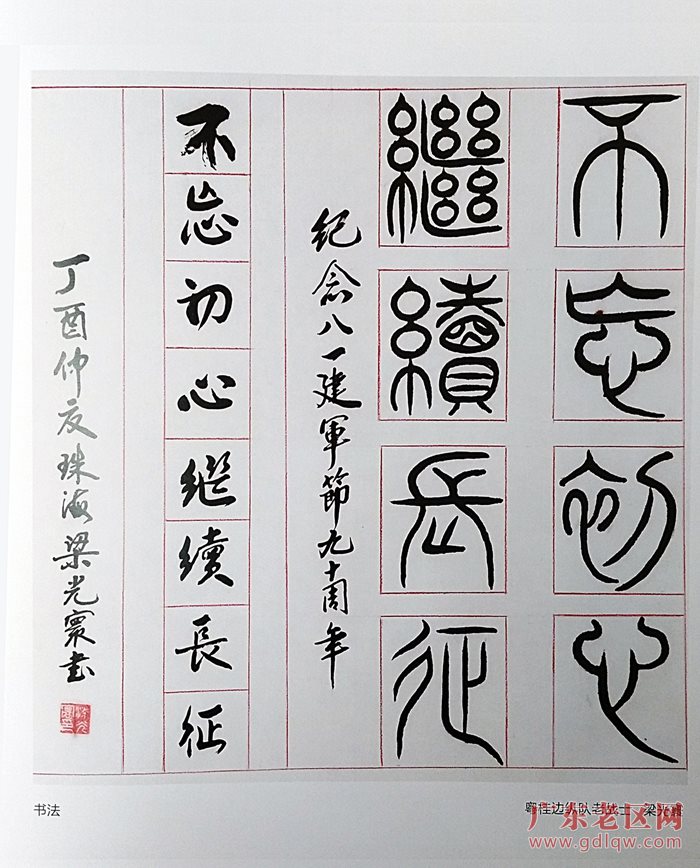 不忘初心
繼續長征
纪念八一建軍節九十周年
不忘初心继續長征
丁酉仲夏珠海梁光寰书
书法
粤桂边纵队老战士 梁光
广东老区网
www.gdlqw.com